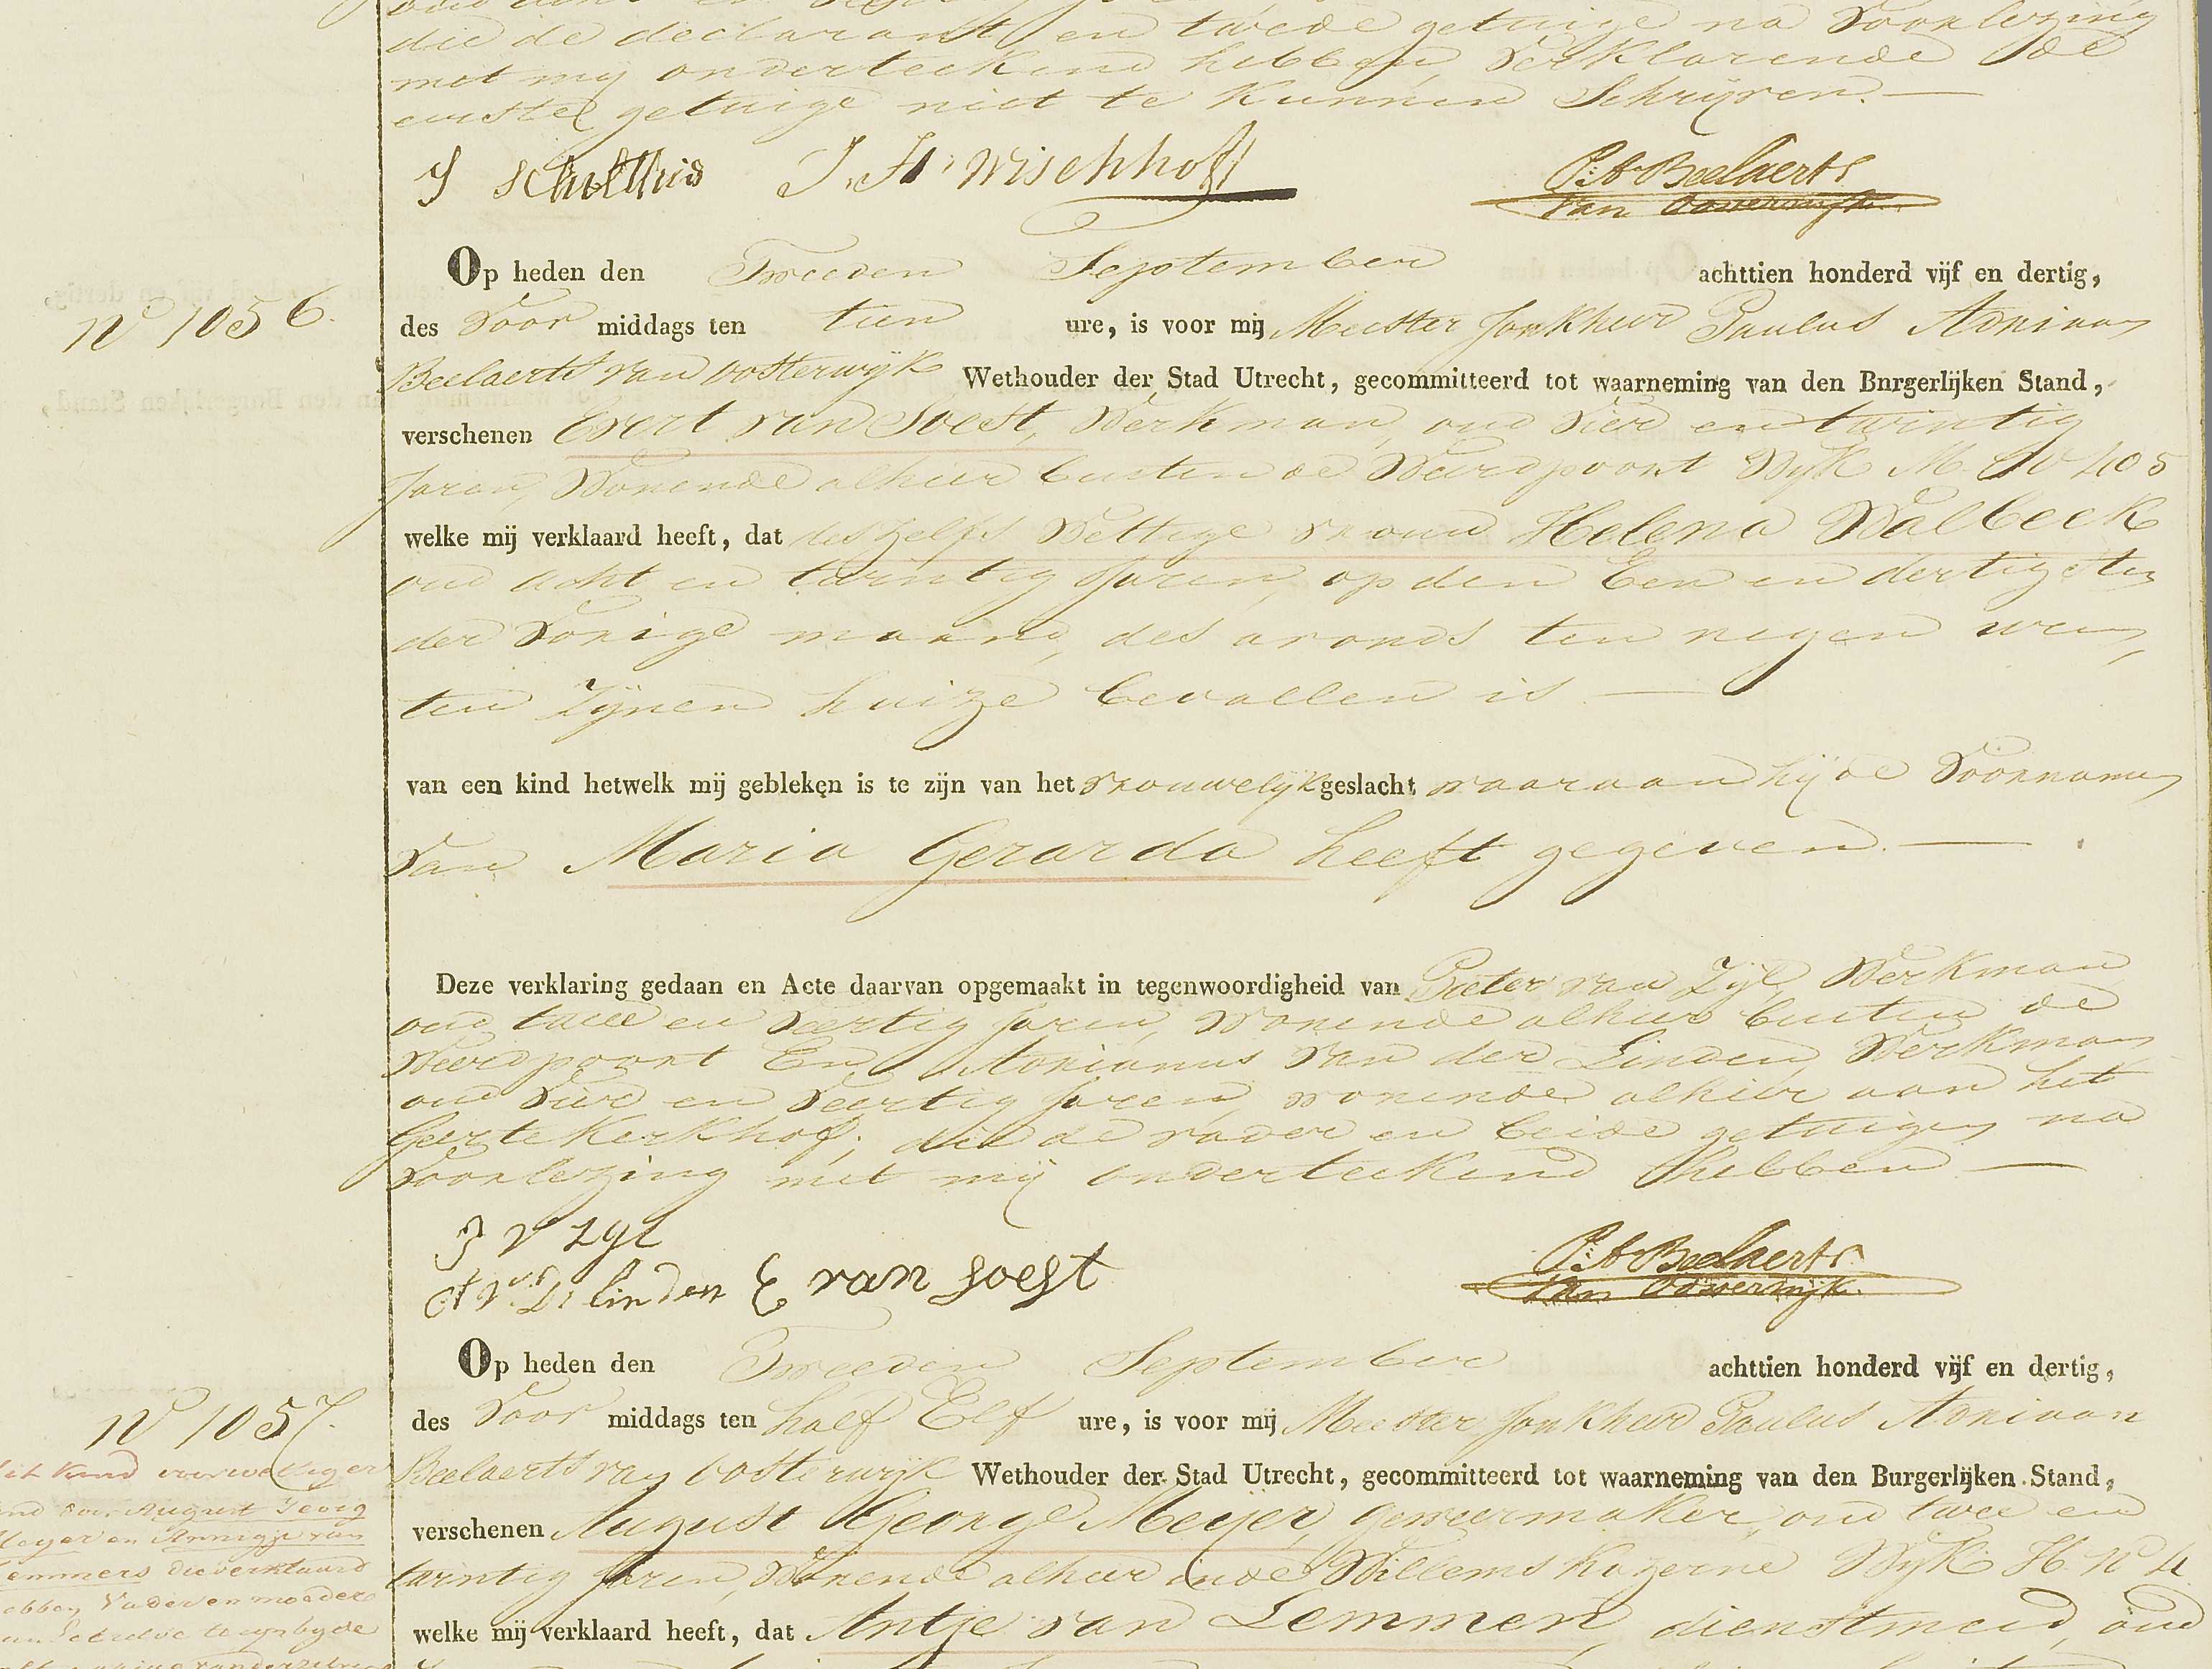 die de declarant en twede getuige na voorlezing
met mij onderteekend hebben, verklarende de
eerste getuige niet te kunnen Schrijven. —
J Schulthis J. H. Wischhoff P: A. Beelaerts
van Oosterwijk.
Op heden den Tweeden September achttien honderd vijf en dertig,
No 1056.
des Voor middags ten tien ure, is voor mij Meester Jonkheer Paulus Adriaan
Beelaerts van Oosterwijk Wethouder der Stad Utrecht, gecommitteerd tot waarneming van den Bnrgerlijken Stand,
verschenen Evert van Soest, Werkman, oud Vier en twintig
Jaren, Wonende alhier buiten de Weerdpoort Wijk M. No 405
welke mij verklaard heeft, dat deszelfs Wettige vrouw Helena Walbeek
oud acht en twintig Jaren, op den Een en dertigsten
der Vorige maand, des avonds ten negen ure,
ten Zijnen huize bevallen is —
van een kind hetwelk mij gebleken is te zijn van het vrouwelijk geslacht waaraan hij de Voornamen
van Maria Gerarda heeft gegeven. —
Deze verklaring gedaan en Acte daarvan opgemaakt in tegenwoordigheid van Pieter van Zijl, Werkman
oud twee en veertig Jaren, wonende alhier buiten de
Weerdpoort En Adrianus van der Linden, Werkman
oud Vier en Veertig Jaren, wonende alhier aan het
Geertekerkhof; die de vader en beide getuigen na
voorlezing met mij onderteekend hebben —
P V Zyl
A V.D. linden E van Soest P: A. Beelaerts
van Oosterwijk.
Op heden den Tweeden September achttien honderd vijf en dertig,
No 1057.
des Voor middags ten half Elf ure, is voor mij Meester Jonkheer Paulus Adriaan
Beelaerts van Oosterwijk Wethouder der Stad Utrecht, gecommitteerd tot waarneming van den Burgerlijken Stand,
verschenen August George Meijer, geweermaker, oud twee en
twintig Jaren, Wonende alhier in de Willems Kazerne Wijk H. No 4
welke mij verklaard heeft, dat Antje van Lemmen, dienstmeid, oud
dit kind
August
Meyer en Annigje van
Lemmers die verklaard
hebben Vader en moeder